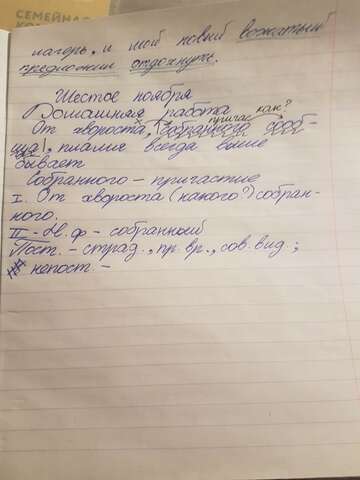 СЕМЕЙНАЯ
лагерь, и мой новый вожатый
предложил отдохнуть.
Шестое ноября
Домашняя работа
как?
причас
От хвороста, собранного сооб-
ща, пламя всегда выше
бывает
Собранного – причастие
I. От хвороста (какого?) собран-
ного.
II – Н.ф – собранный
Пост. – страд., пр.вр., сов.вид;
непост. –